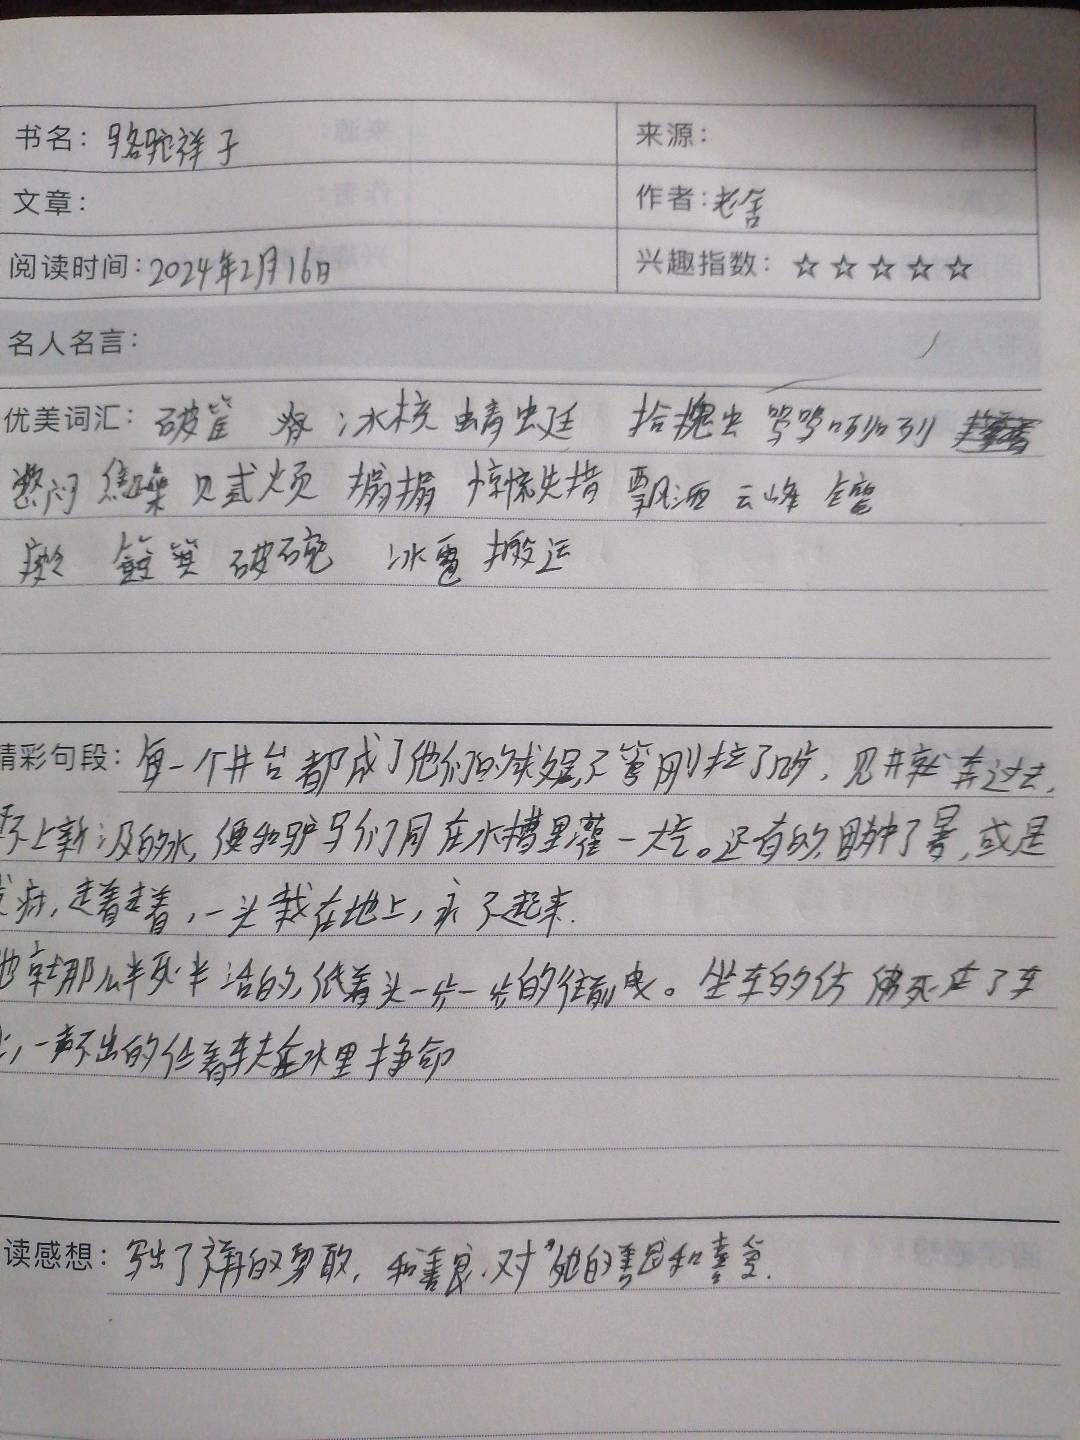 书名：骆驼祥子 来源：
文章： 作者：老舍
阅读时间：2024年2月16日 兴趣指数：☆☆☆☆☆
名人名言：
优美词汇：破筐 脊 冰核 蜻蜓 拾槐虫
憋闷 焦躁 贰烦 搧搧 惊慌失措 飘洒 云峰
簸箕 破碗 冰雹 搬运
精彩句段：每一个井台都成了他们的救星，不管刚拉了几步，见井就奔过去，
不上新汲的水，便和驴马们同在水槽里灌一大气。还有的，因中了暑，或是
发痧，走着走着，一头栽在地上，永不起来.
他就那么半死半活的，低着头一步一步的往前曳。坐车的仿佛死在了车
上，一声不出的任着车夫在水里挣命
读感想：写出了祥子的勇敢，和善良.对